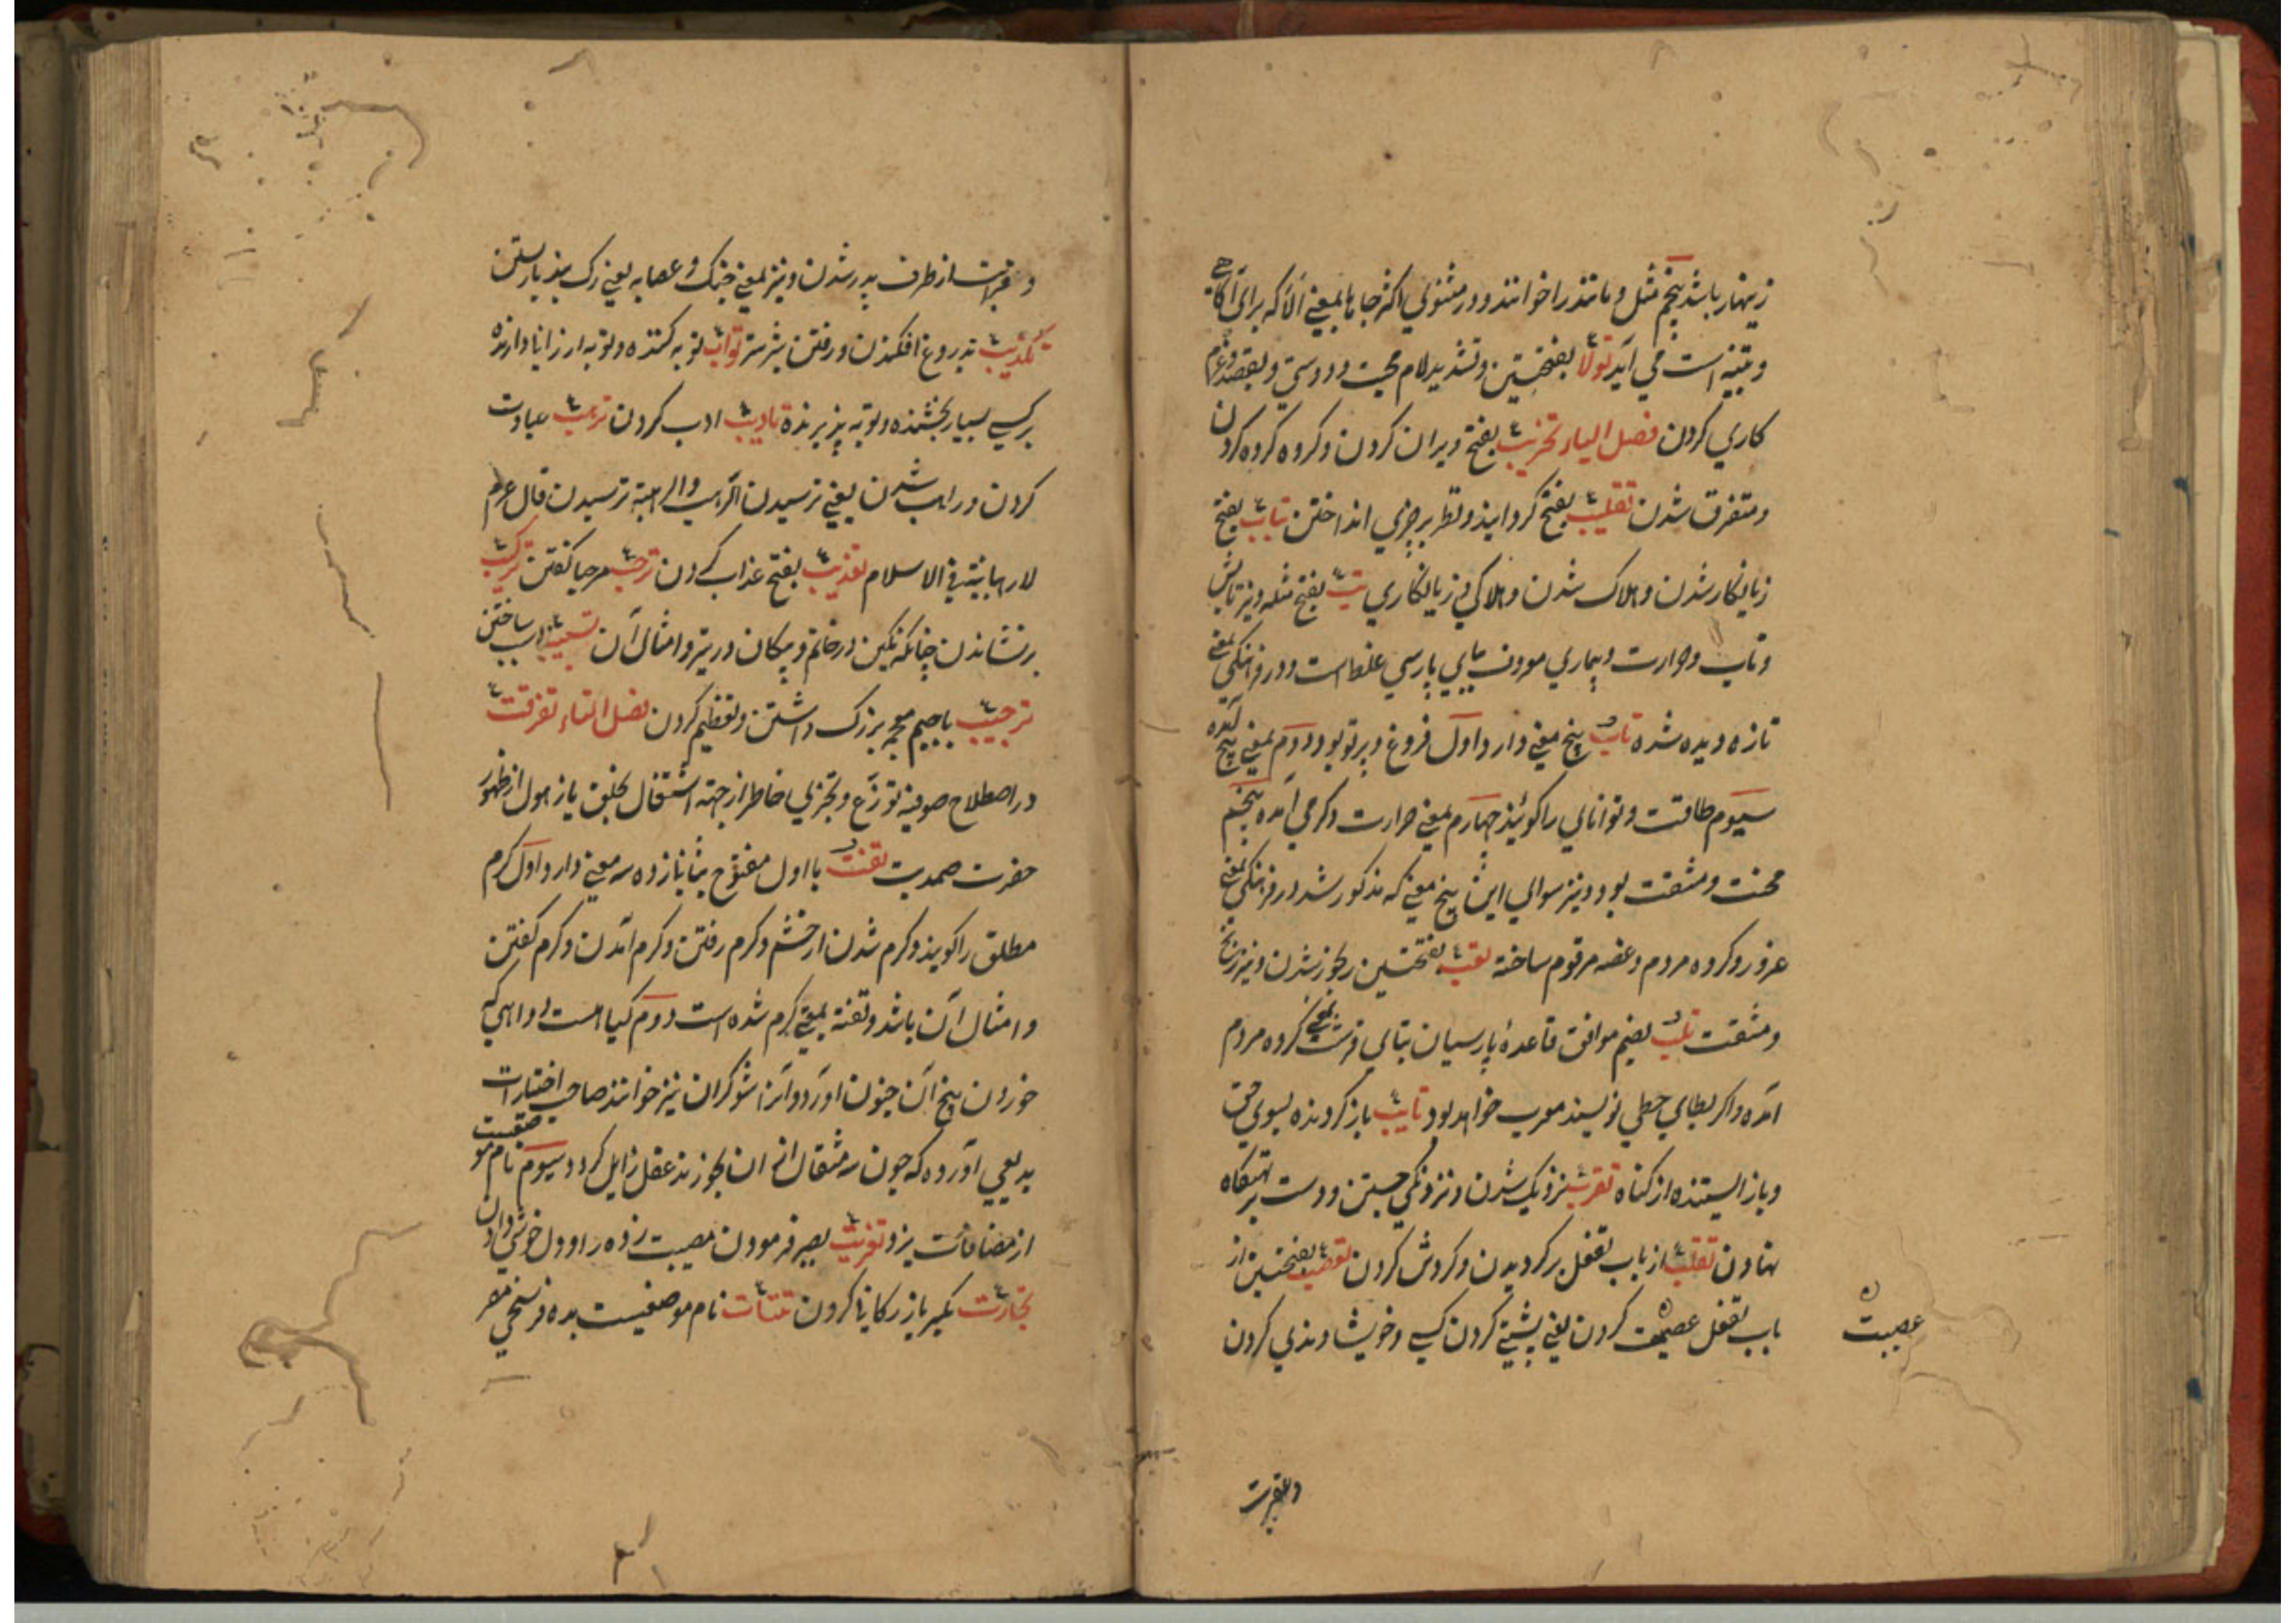 زینهار باشد پنجم مثل و مانند را خوانند و در مثنوی اکثر جاها بمعنی الا که برای آگاهی
و تنبیه است می آید تولا بفتحتین و تشدید لام محبت و دوستی و بقصد و عزم
کاری کردن فصل الباء تخریب بفتح ویران کردن و کروه کروه کردن
و متفرق شدن تقلیب بفتح کردانیدن و نظر بر چیزی انداختن تباب بفتح
زیانکار شدن و هلاک شدن و هلاکی و زیانکاری تب بفتح مثله و نیز تابش
و تاب و حرارت و بیماری معروف بپای پارسی غلط است و در فرهنگی بمعنی
تازه دیده شده تاب پنج معنی دارد اول فروغ و پرتو بود دوم بمعنی پیچ آمده
سیوم طاقت و توانایی را کوئیند چهارم بمعنی حرارت و کرمی آمده پنجم
محنت و مشقت بود و نیز سوای این پنج معنی که مذکور شد در فرهنگی بمعنی
غرور و کروه مردم و غصه مرقوم ساخته تعب بفتحتین رنجور شدن و نیز رنج
و مشقت تلب بضم موافق قاعدهٔ پارسیان بتای قرشت بمعنی کروه مردم
آمده و اکر بطای حطی نویسند معرب خواهد بود تایب باز کردنده بسوی حق
و باز ایستنده از کناه تقرب نزدیک شدن و نزدیکی جستن و دست بر تهیکاه
نهادن تقلب از باب تفعل بر کردیدن و کردش کردن تعصب بفتحتین از
باب تفعل عصبیت کردن یعنی پشتی کردن کسی و خویشاوندی کردن
عصبیت
و قرابت
و قرابت از طرف پدر شدن و نیز بمعنی جنک و عصابه یعنی رک بند بار بستن
تکذیب بدروغ افکندن و رفتن شیر شتر تواب توبه کننده و توبه ارزانی دارنده
بر کسی بسیار بخشنده و توبه پذیرنده تادیب ادب کردن ترهب عبادت
کردن و راهب شدن یعنی ترسیدن الراهب والرهبة ترسیدن قال عم
لا رهبانیة فی الاسلام تعذیب بفتح عذاب کردن ترحیب مرحبا کفتن ترکیب
بر نشاندن چنانکه نکین در خاتم و پیکان در تیر و امثال آن تسبیب سبب ساختن
ترجیب باجیم معجمه بزرک داشتن و تعظیم کردن فصل التاء تفرقت
در اصطلاح صوفیه توزع و تجزی خاطر از جهته اشتغال بخلق یا ذهول از ظهور
حضرت صمدیت تفت با اول مفتوح بثانی زده سه معنی دارد اول کرم
مطلق را کویند و کرم شدن از خشم و کرم رفتن و کرم آمدن و کرم کفتن
و امثال آن باشد و تفته بمعنی کرم شده است دوم کیاهست دوایی که
خوردن بیخ آن جنون آورد و آنرا شوکران نیز خوانند صاحب اختیارات
بدیعی آورده که چون سه مثقال از آن بخورند عقل زایل کردد سیوم نام موضعیست
از مضافات یزد تعزیت بصبر فرمودن مصیبت زده را و دل خوشی دادن
تجارت بکسر بازرکانی کردن نام موضعیست بده فرسخی مصر